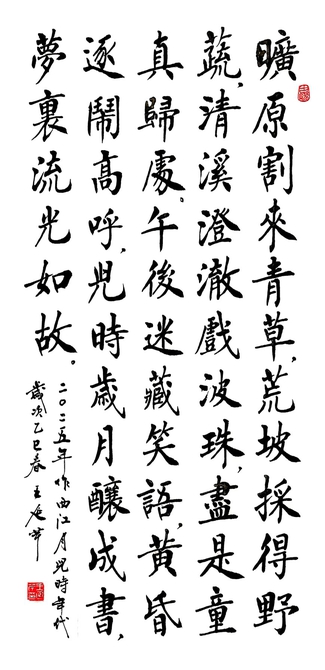 曠原割來青草，荒坡採得野
蔬，清溪澄澈戲波珠，盡是童
真歸處。午後迷藏笑語，黃昏
逐鬧高呼，兒時歲月釀成書，
夢裏流光如故。
二〇二五年作西江月兒時年代
歲次乙巳春王